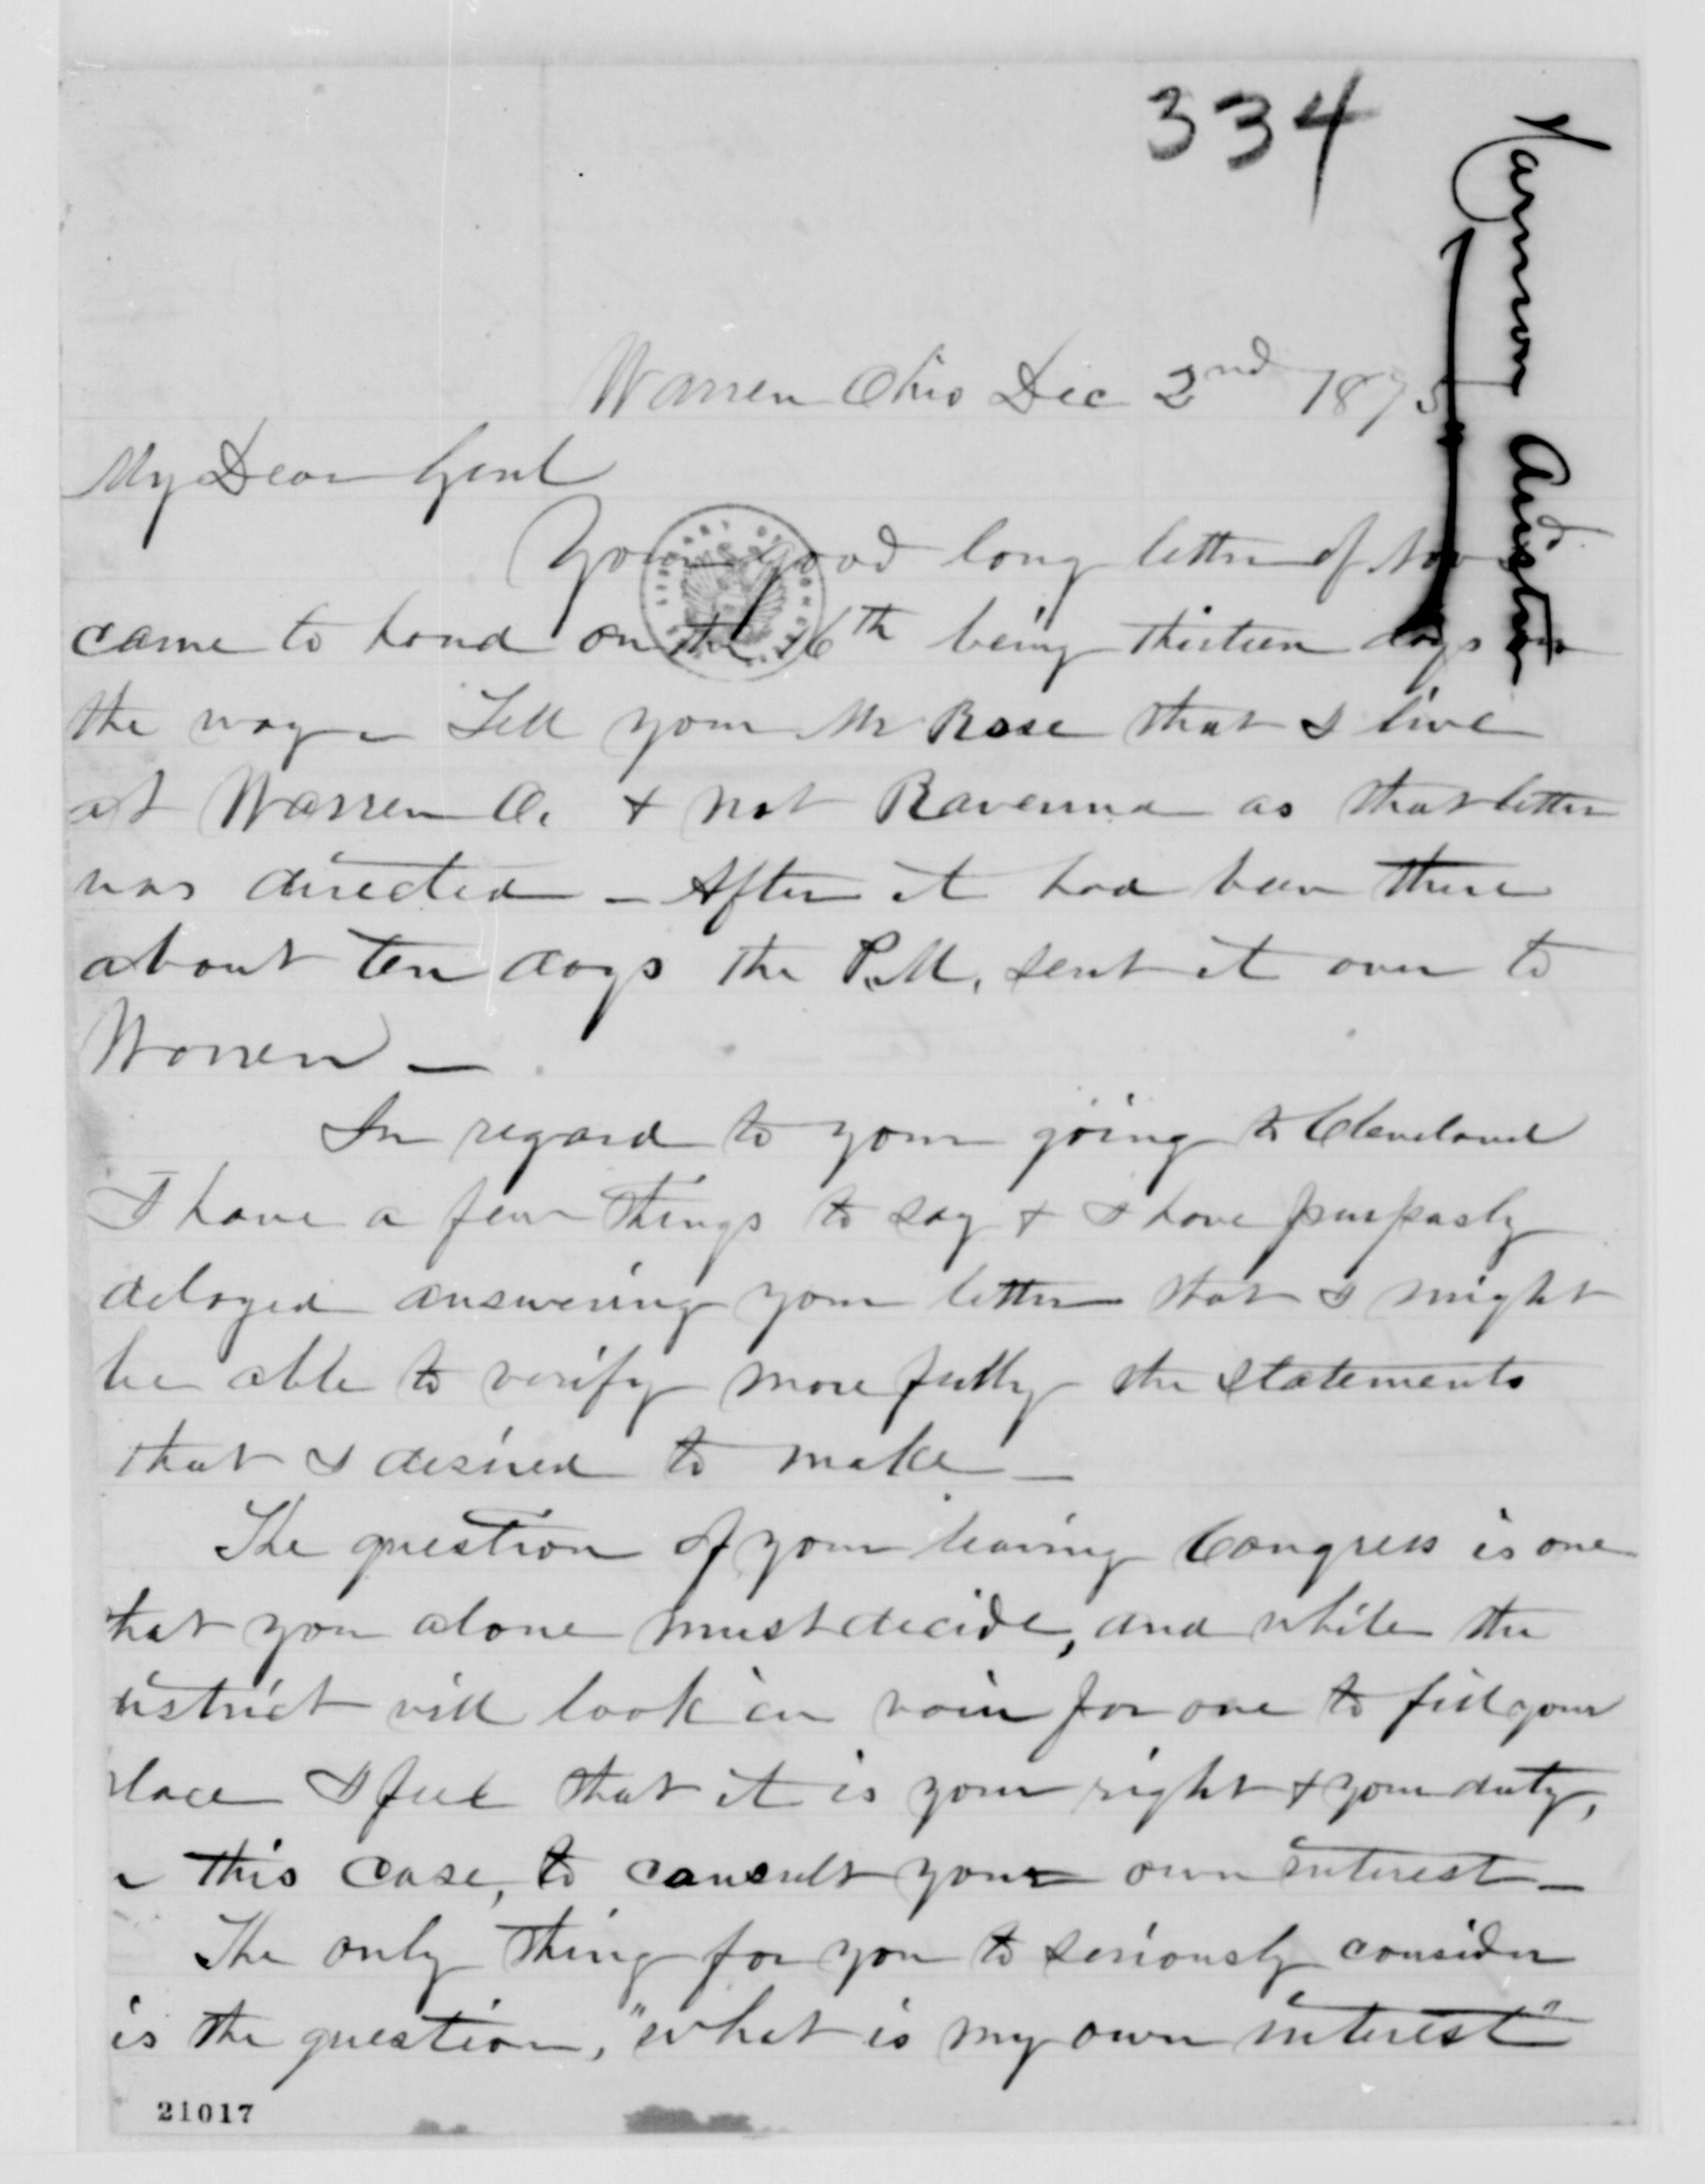 334
Harmon Austin
Warren Ohio Dec 2nd 1875
My Dear Genl
Your good long letter of Nov
came to hand on the 26th being thirteen days on
the way - Tell your Mr Rose that I live
at Warren O. & not Ravenna as that letter
was directed - After it had been there
about ten days the P.M. sent it over to
Warren -
In regard to your going to Cleveland
I have a few things to say & I have purpasly
delayed answering your letter that I might
be able to verify more fully the statements
that I desired to make -
The question of your leaving Congress is one
that you alone must decide, and while the
district will look in vain for one to fill your
place I feel that it is your right & your duty,
in this case, to consult your own interest -
The only thing for you to seriously consider
is the question, "what is my own interest"
21017